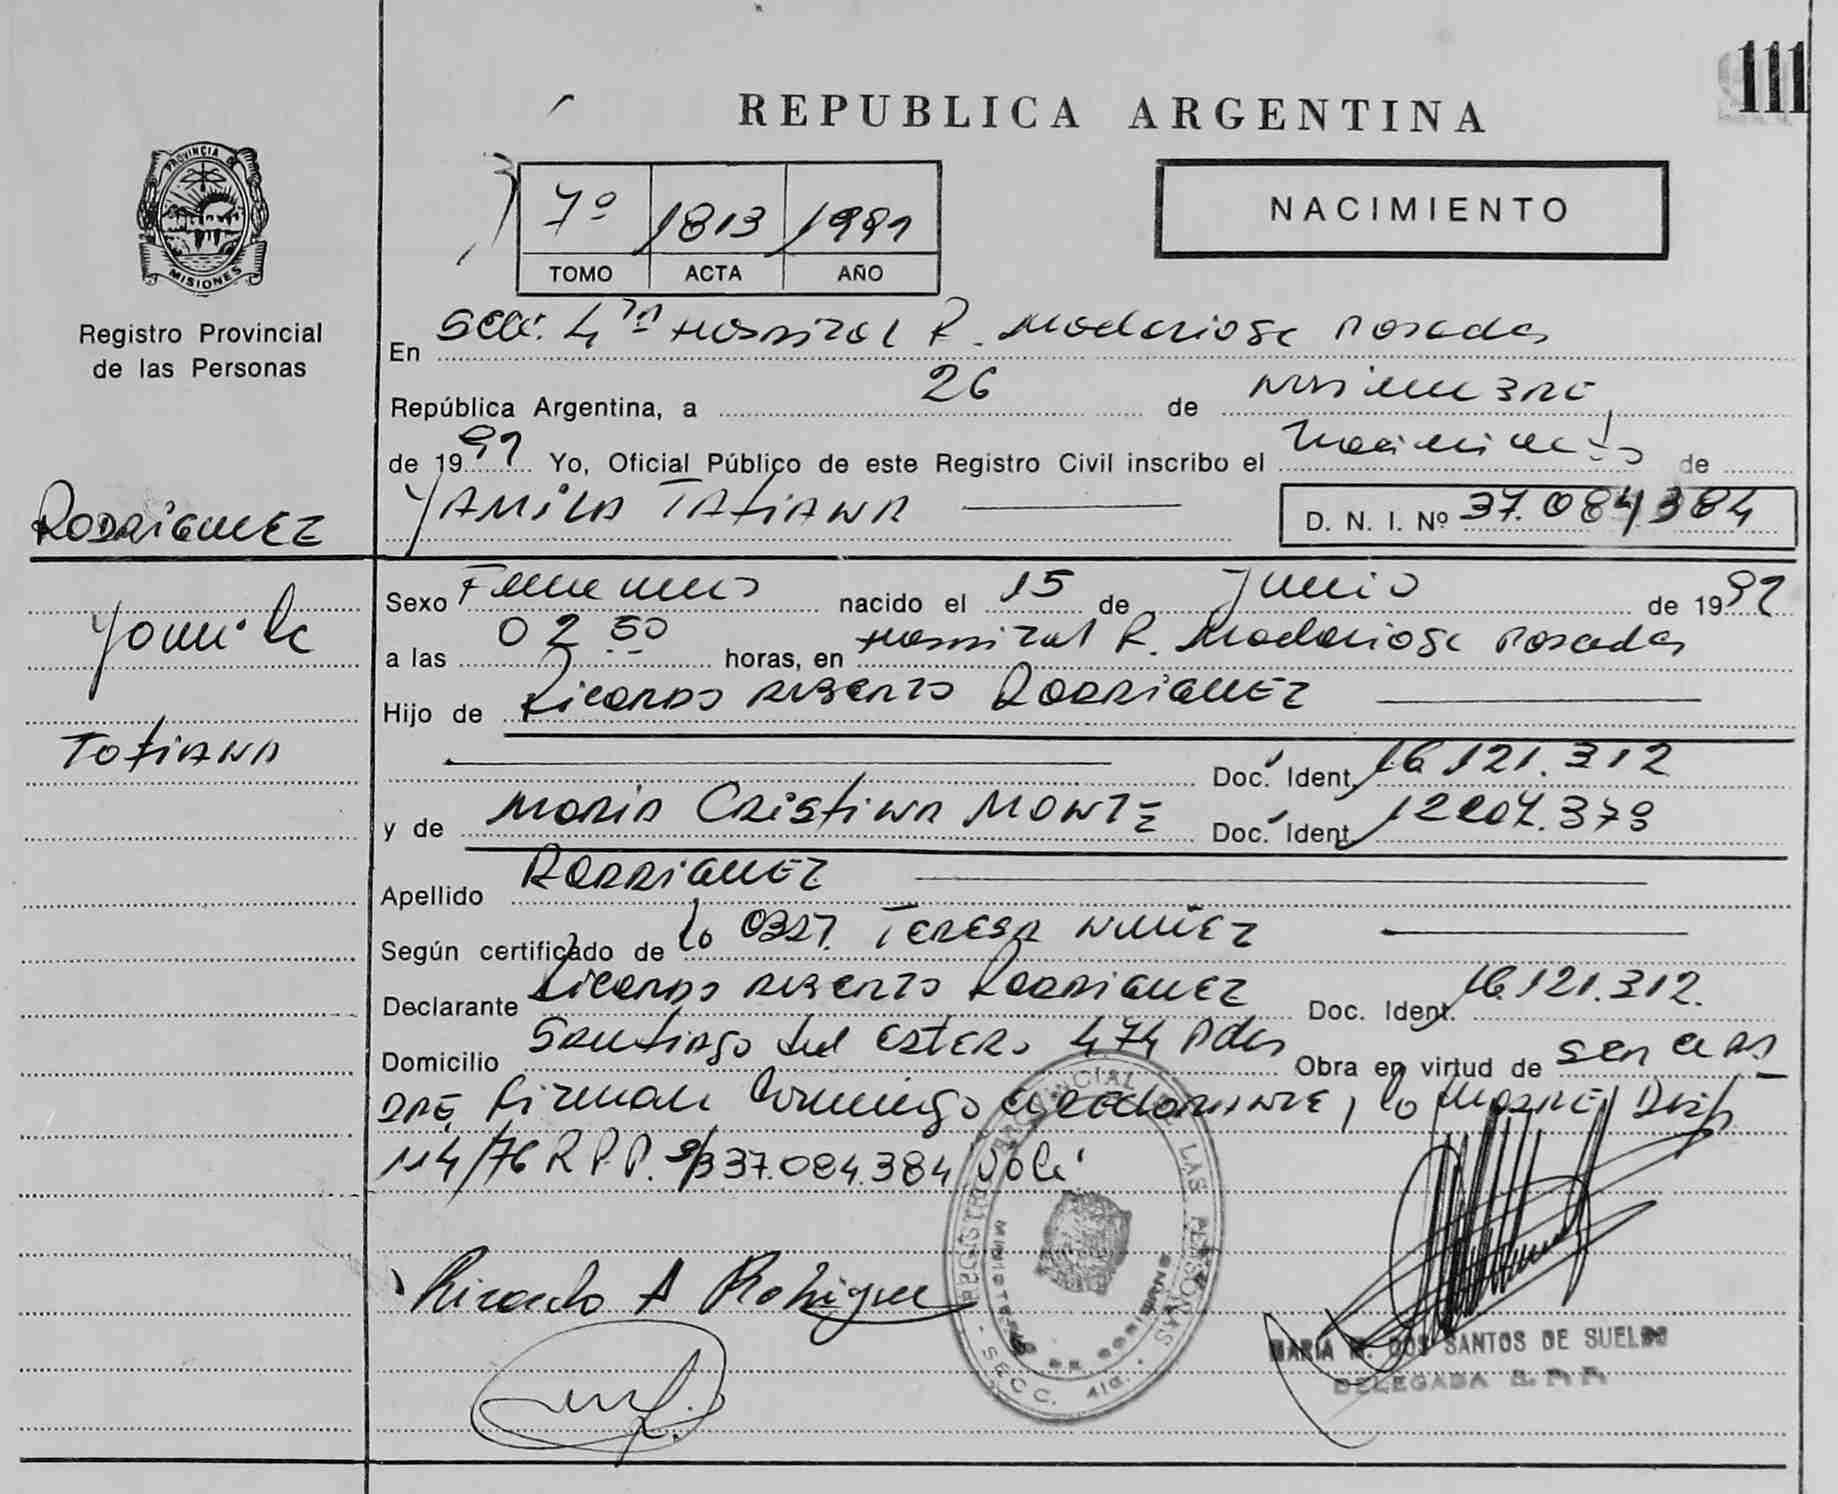 111
REPUBLICA ARGENTINA
PROVINCIA DE
MISIONES
Registro Provincial
de las Personas
7º 1813 1991
TOMO ACTA AÑO
NACIMIENTO
En Secc. 4ta Hospital R. Madariaga Posadas
República Argentina, a 26 de Noviembre
de 1991 Yo, Oficial Público de este Registro Civil inscribo el Nacimiento de
RODRIGUEZ
YAMILA TATIANA
D. N. I. Nº 37.084.384
Yamila
Tatiana
Sexo Femenino nacido el 15 de Junio de 1991
a las 02 50 horas, en Hospital R. Madariaga Posadas
Hijo de Ricardo Alberto RODRIGUEZ
Doc. Ident. 16.121.312
y de Maria Cristina Monte Doc. Ident. 12.207.379
Apellido RODRIGUEZ
Según certificado de la Obst. Teresa Nuñez
Declarante Ricardo Alberto Rodriguez Doc. Ident. 16.121.312.
Domicilio Santiago del Estero 474 Pdas Obra en virtud de ser el PA
DRE, Firman Conmigo el declarante, la Madre, Disp
114/76 R.P.P. S/B 37.084.384 Vale
Ricardo A Rodriguez
REGISTRO PROVINCIAL DE LAS PERSONAS
MINISTERIO DE GOBIERNO
SECC. 4ta.
MARIA M. DOS SANTOS DE SUELDO
DELEGADA R. P. P.